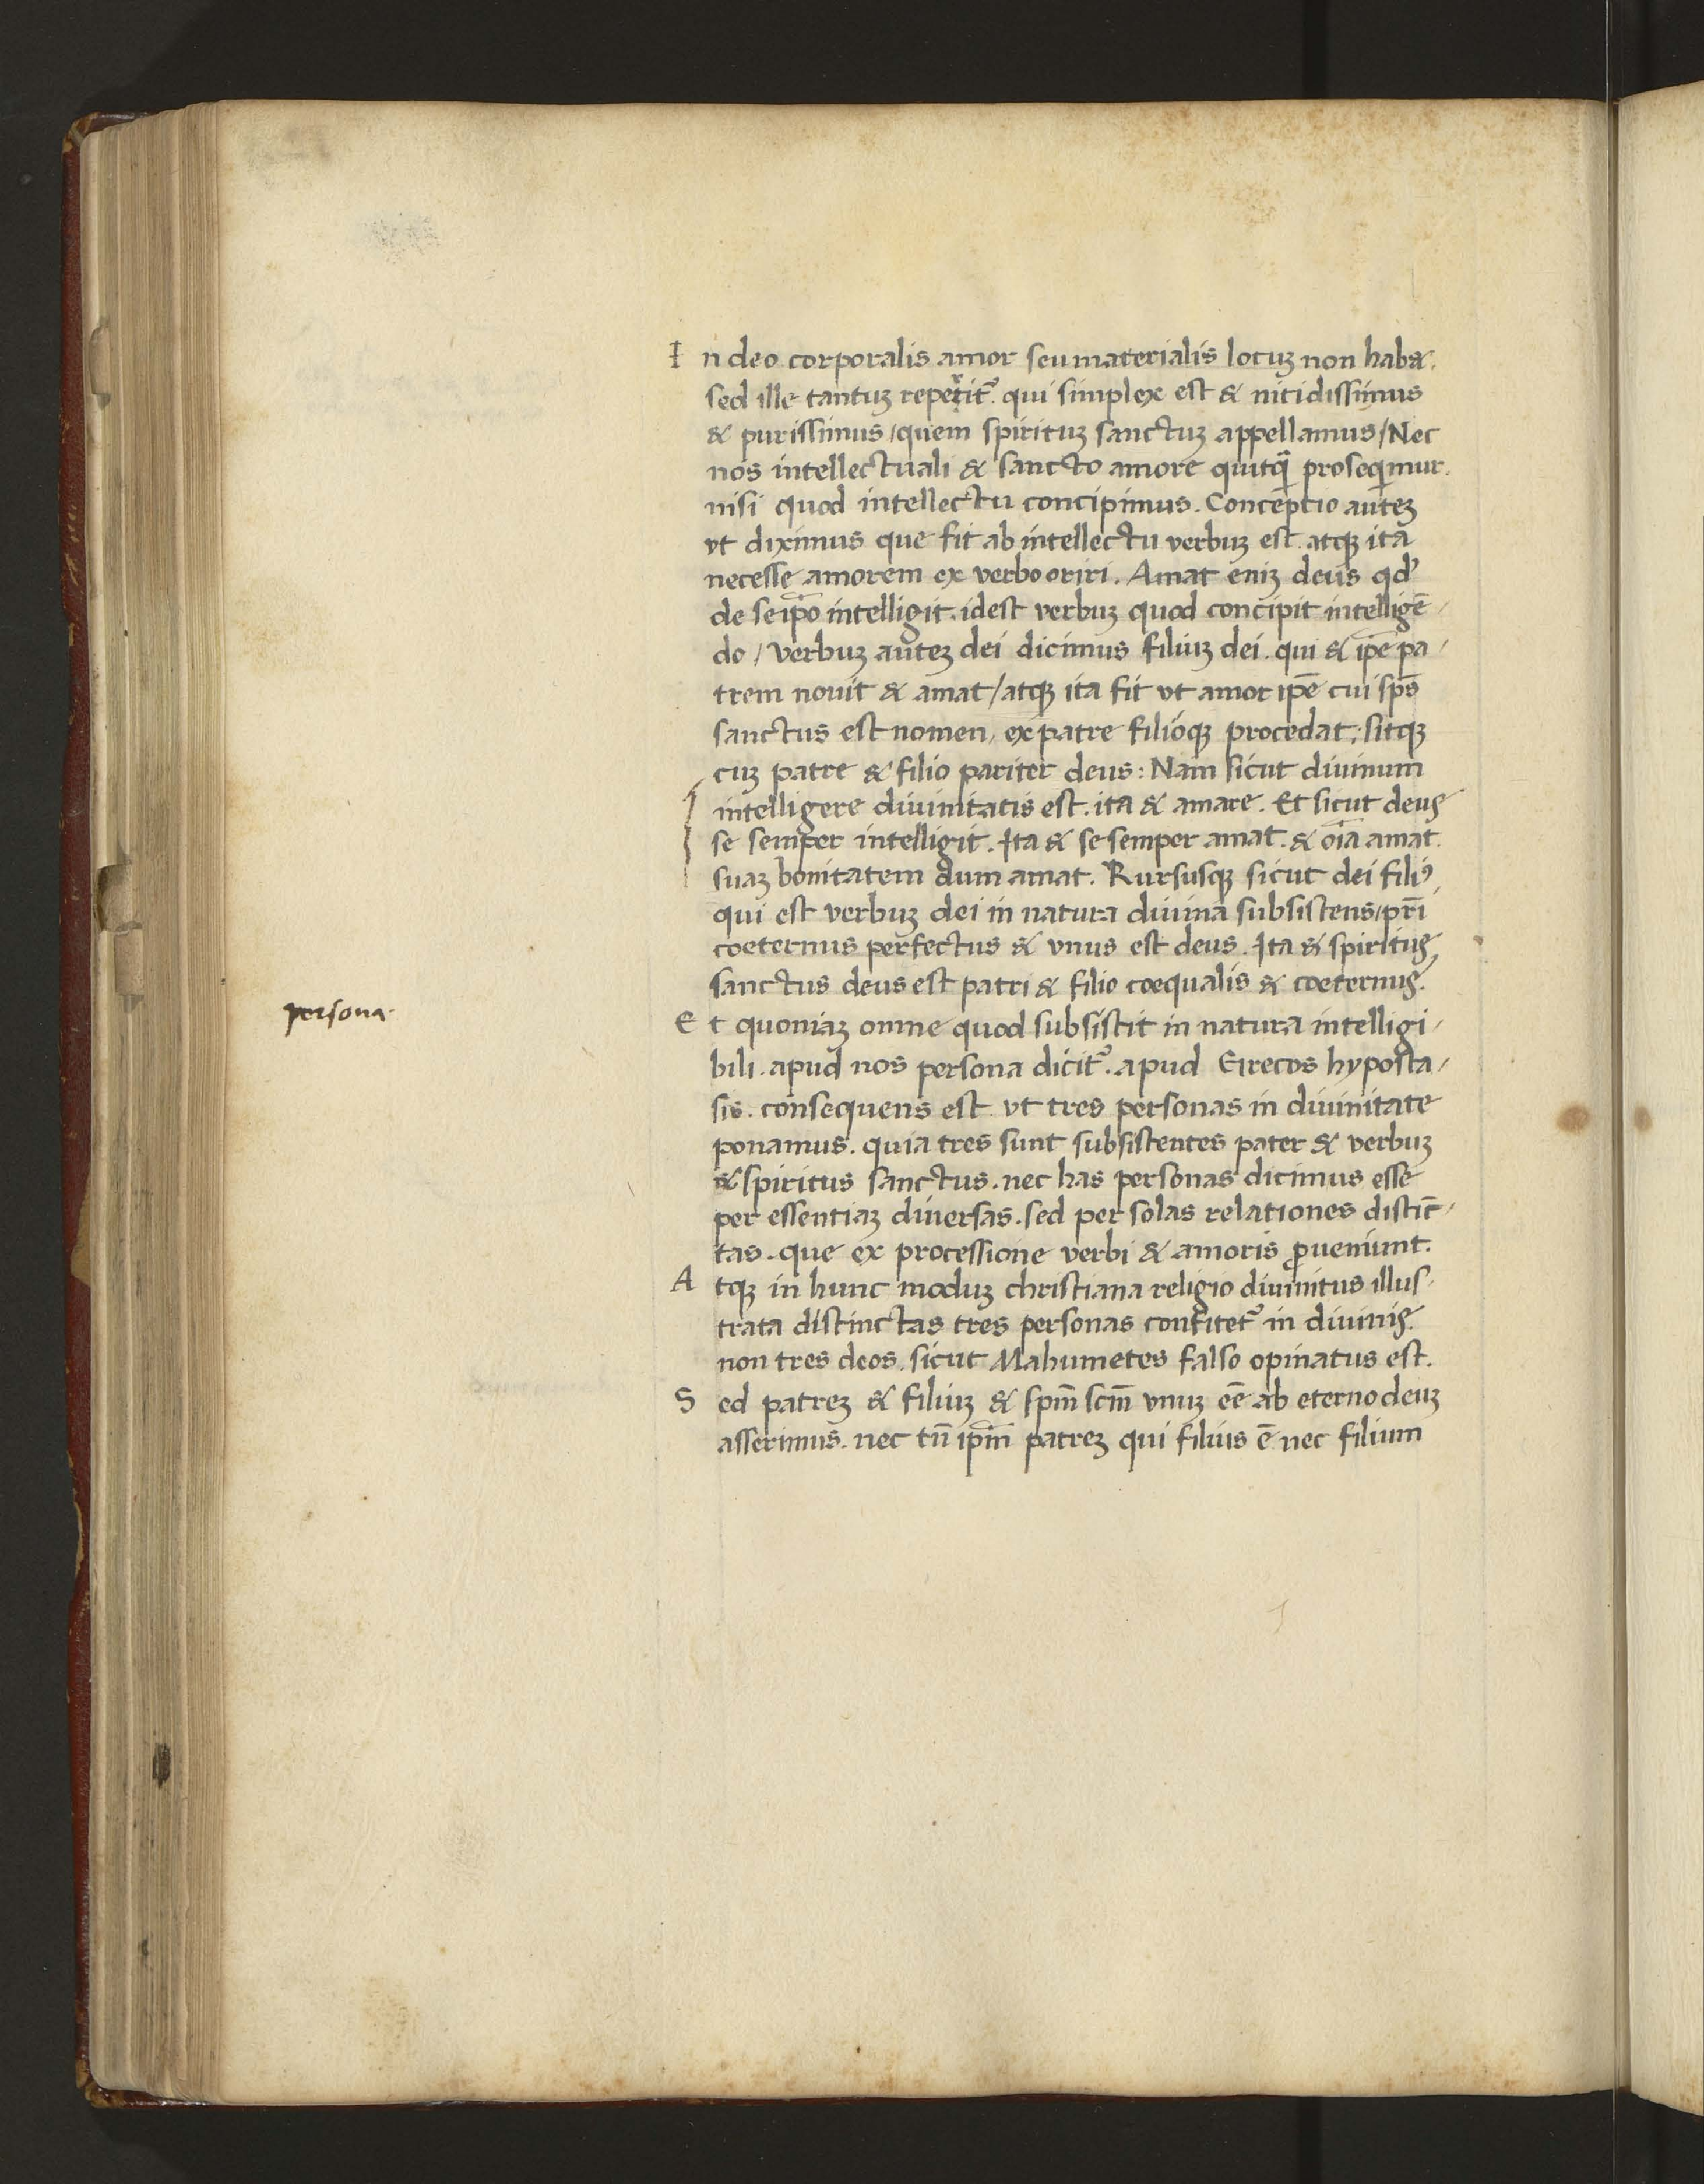 In deo corporalis amor seu materialis locuꝫ non habet.
sed ille tantuꝫ reperit᷑. qui simplex est & nitidissimus
& purissimus / quem spirituꝫ sanctuꝫ appellamus / Nec
nos intellectuali & sancto amore quitq̄ proseqimur.
nisi quod intellectu concipimus. Conceptio auteꝫ
vt diximus que fit ab intellectu verbuꝫ est. atqꝫ ita
necesse amorem ex verbo oriri. Amat eniꝫ deus qđ
de seip̄o intelligit. idest verbuꝫ quod concipit intelligē-
do / verbuꝫ auteꝫ dei dicimus filiuꝫ dei. qui & ip̄e pa-
trem nouit & amat / atqꝫ ita fit vt amor ip̄e cui sp̄s
sanctus est nomen, ex patre filioqꝫ procedat; sitqꝫ
cuꝫ patre & filio pariter deus: Nam sicut diuinum
intelligere diuinitatis est. ita & amare. Et sicut deus
se semper intelligit. Ita & se semper amat. & oīa amat.
suaꝫ bonitatem dum amat. Rursusqꝫ sicut dei filiꝰ
qui est verbuꝫ dei in natura diuina subsistens / pr̄i
coeternus perfectus & vnus est deus. Ita & spiritus
sanctus deus est patri & filio coequalis & coeternus.
persona.
Et quoniaꝫ omne quod subsistit in natura intelligi-
bili. apud nos persona dicit᷑. apud Grecos hyposta-
sis. consequens est vt tres personas in diuinitate
ponamus. quia tres sunt subsistentes pater & verbuꝫ
& spiritus sanctus. nec has personas dicimus esse
per essentiaꝫ diuersas. sed per solas relationes distīc-
tas. que ex processione verbi & amoris ꝓueniunt.
Atqꝫ in hunc moduꝫ christiana religio diuinitus illus-
trata distinctas tres personas confitet᷑ in diuinis.
non tres deos. sicut Mahumetes falso opinatus est.
Sed patreꝫ & filiuꝫ & sp̄m scm̄ vnuꝫ eē ab eterno deuꝫ
asserimus. nec tn̄ ip̄m patreꝫ qui filius ē nec filium